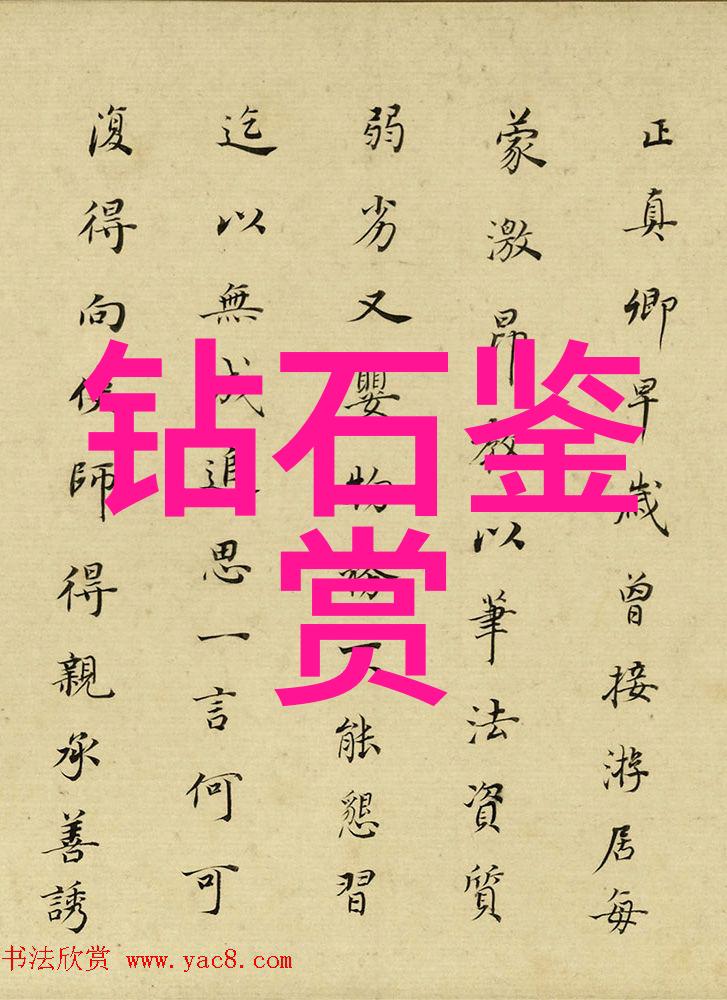 正真卿早歲曾接游居每
蒙激昂教以筆法資質
弱劣又嬰物務不能懇習
迄以無成追思一言何可
復得向使師得親承善誘
钻石鉴
赏
书法欣赏 www.yac8.com